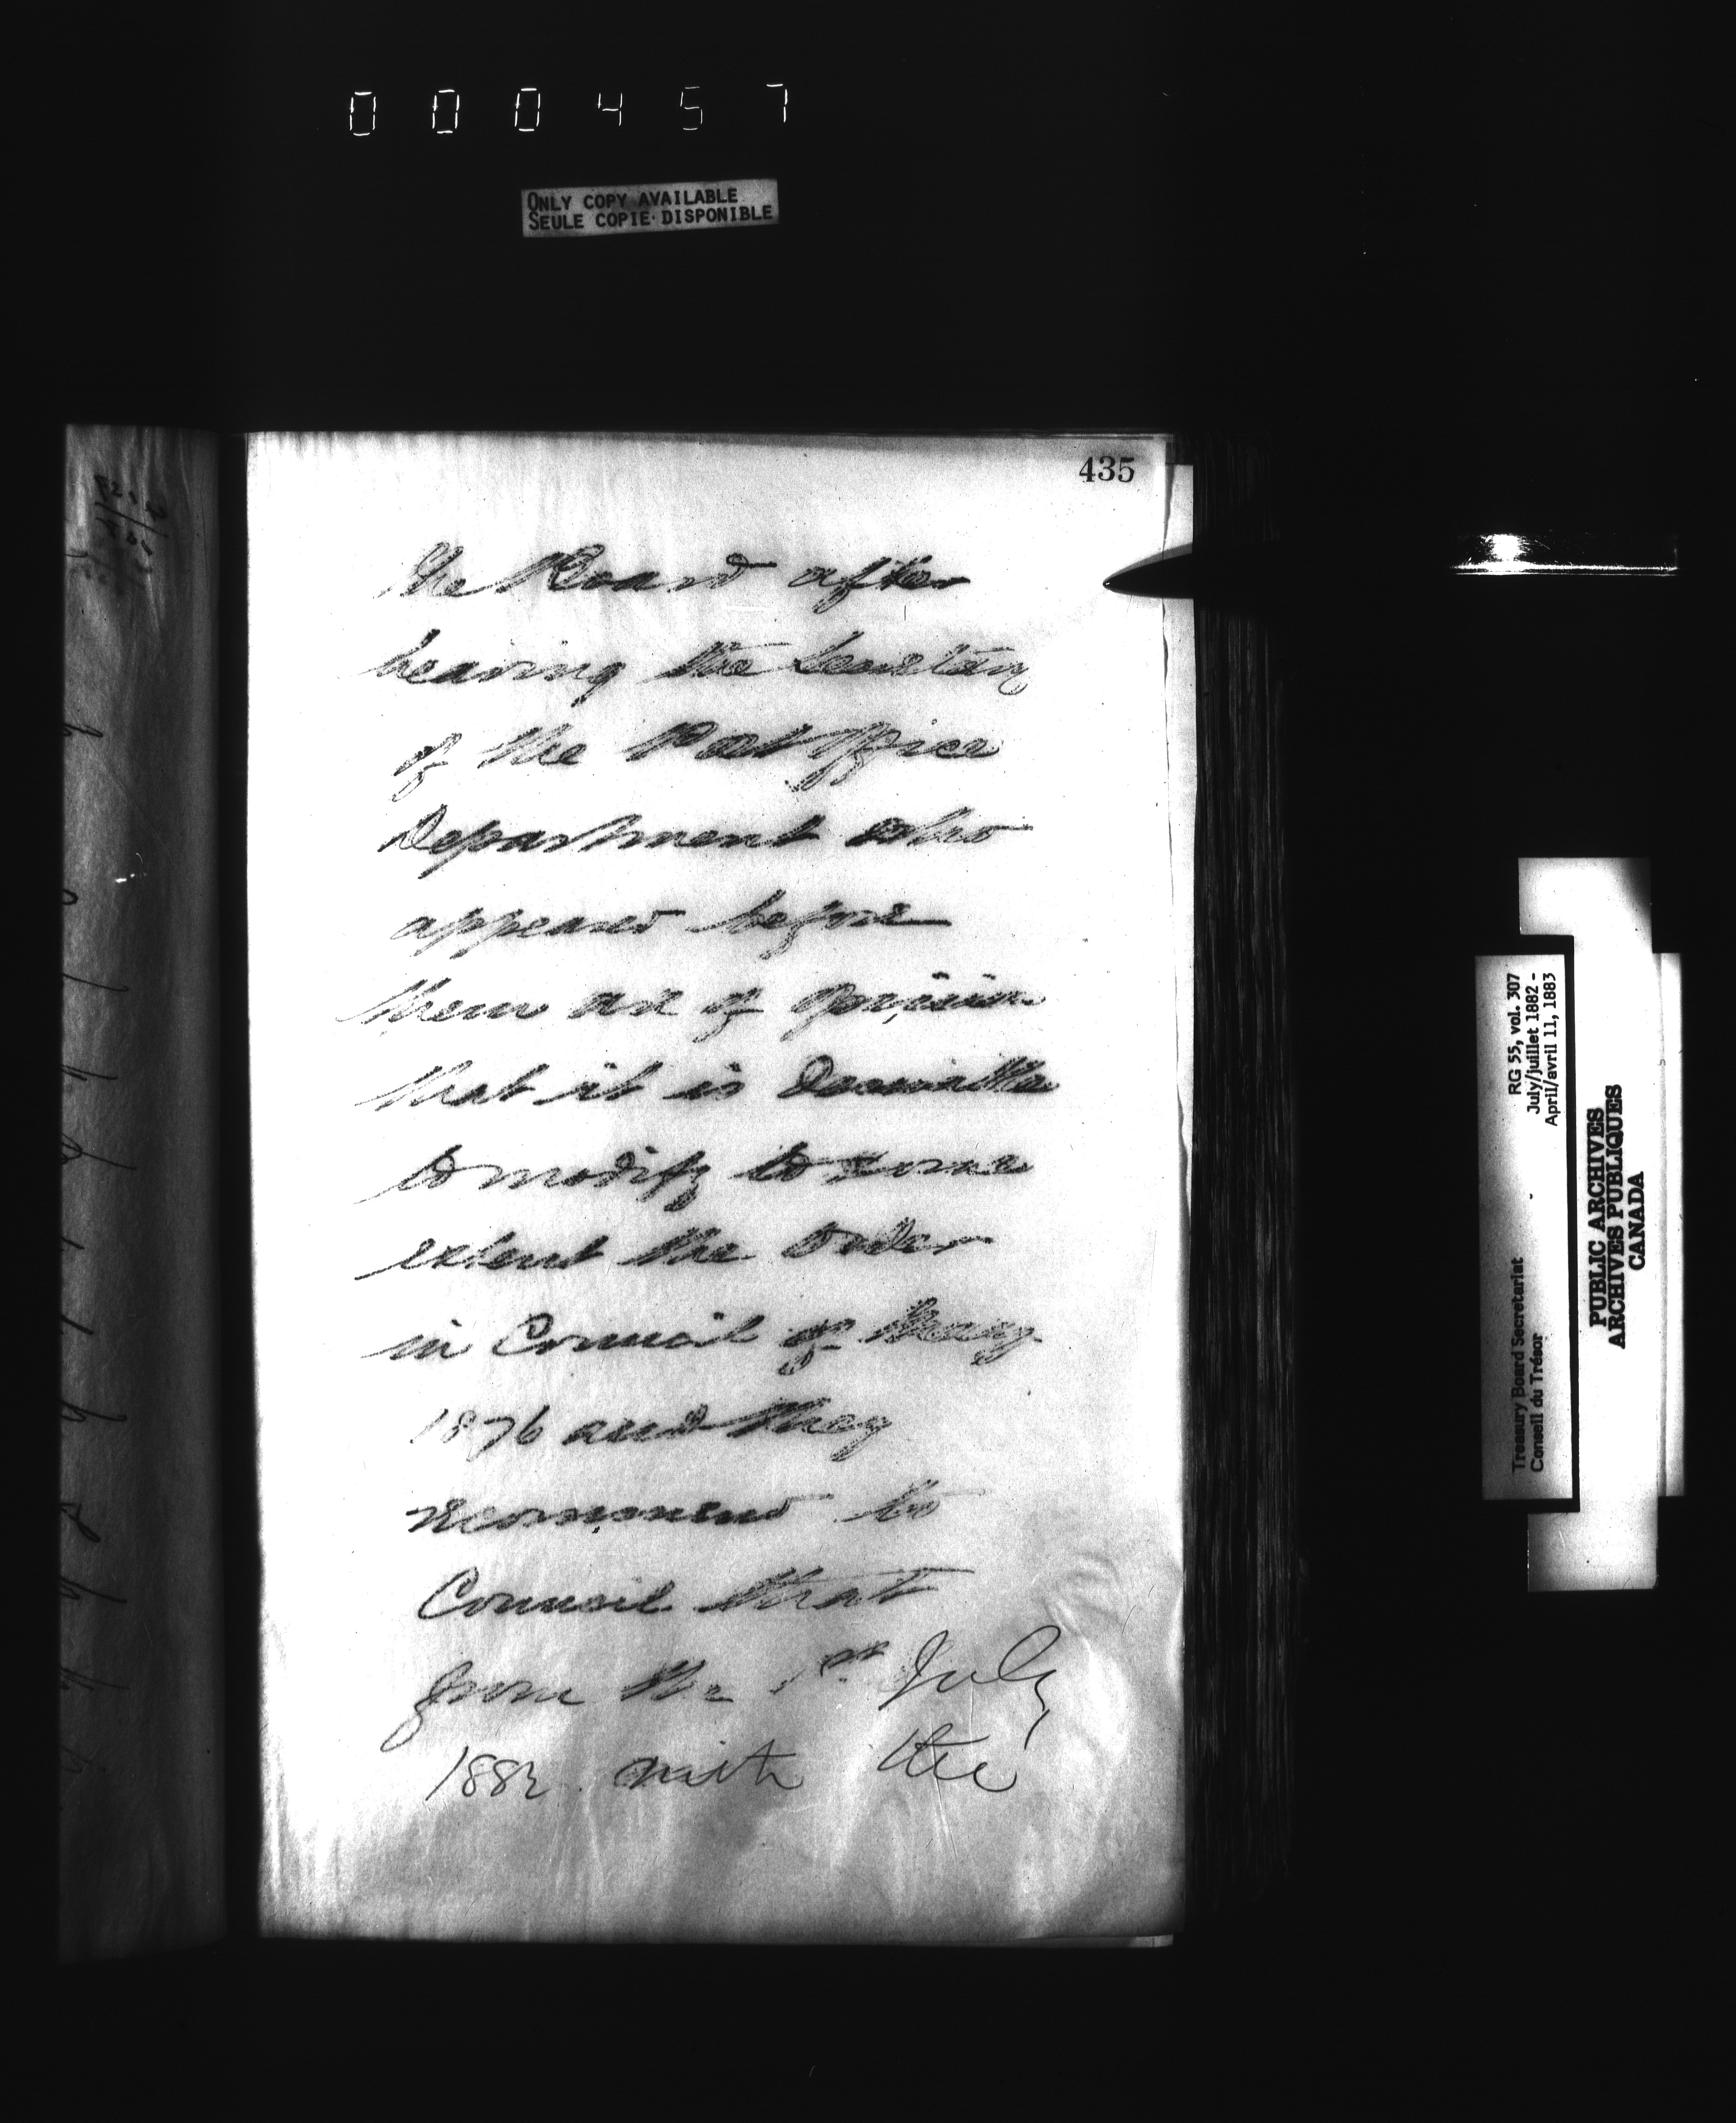 000457
ONLY COPY AVAILABLE
SEULE COPIE DISPONIBLE
435
The Board after
hearing the Secretary
of the Post Office
Department who
appeared before
them are of opinion
that it is desirable
to modify to some
extent the Order
in Council of May
1876 and they
recommend to
Council that
from the 1st July
1882 with the
RG 55, vol. 307
July/juillet 1882 -
April/avril 11, 1883
Treasury Board Secretariat -
Conseil du Trésor
PUBLIC ARCHIVES
ARCHIVES PUBLIQUES
CANADA